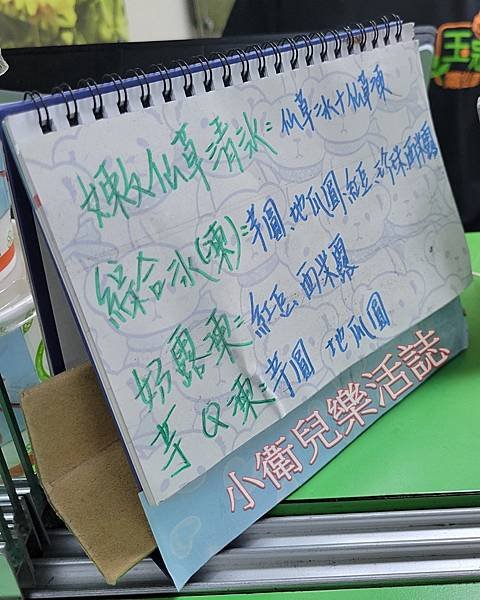 嫩仙草清冰=仙草冰+仙草凍
綜合冰(凍)=芋圓、地瓜圓、紅豆、珍珠、西米露
奶露凍=紅豆 西米露
芋Q凍=芋圓 地瓜圓
小衛兒樂活誌